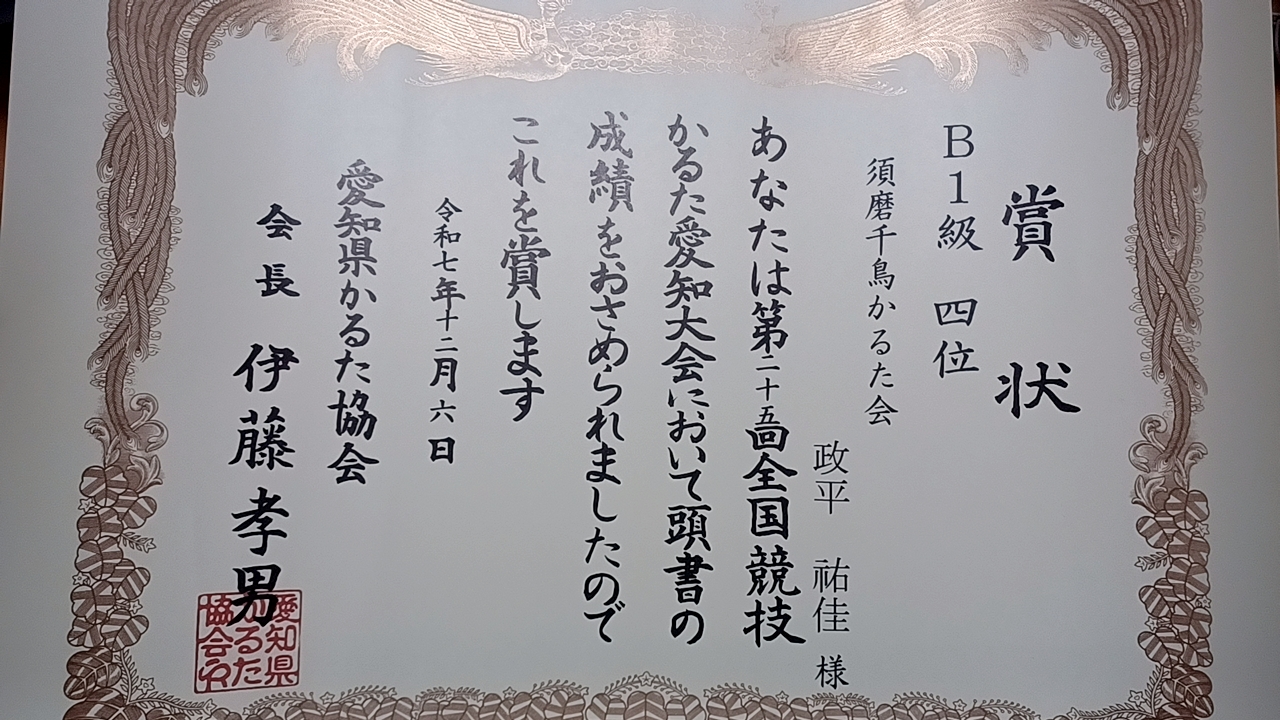 賞状
B1級 四位
須磨千鳥かるた会
政平 祐佳 様
あなたは第二十五回全国競技
かるた愛知大会において頭書の
成績をおさめられましたので
これを賞します
令和七年十二月六日
愛知県かるた協会
会長 伊藤孝男
愛知県
かるた
協会印